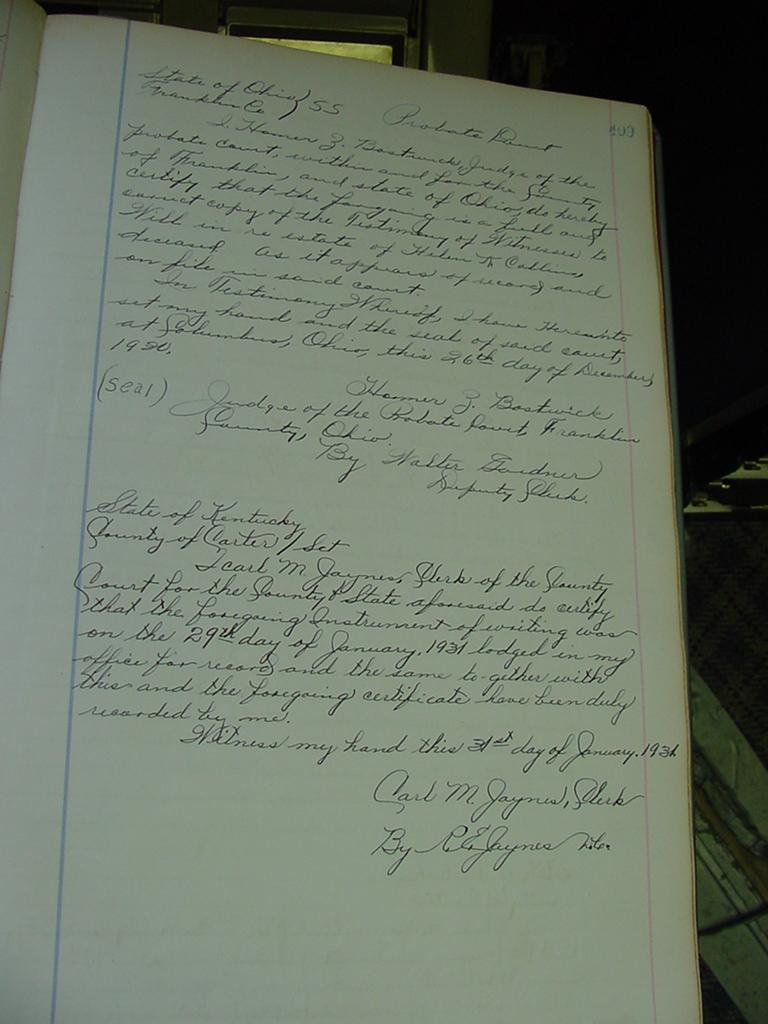 409
State of Ohio) SS Probate Court
Franklin Co
I, Homer Z. Bostwick, Judge of the
probate court, within and for the County
of Franklin, and state of Ohio, do hereby
certify that the forgoing is a full and
correct copy of the Testimony of Witnesses to
Will in re estate of Helen K Collins,
deceased as it appears of record and
on file in said court.
In Testimony Whereof, I have Hereunto
set my hand and the seal of said court,
at Columbus, Ohio, this 26th day of December,
1930.
Homer Z. Bostwick
(seal) Judge of the Probate Court, Franklin
County, Ohio.
By Walter Gardner
Deputy Clerk.
State of Kentucky
County of Carter / Sct
I Carl M. Jaynes, Clerk of the County
Court for the County & State aforesaid do certify
that the foregoing Instrument of writing was
on the 29th day of January, 1931 lodged in my
office for record and the same to-gether with
this and the foregoing certificate have been duly
recorded by me.
Witness my hand this 31st day of January, 1931.
Carl M. Jaynes, Clerk
By R E Jaynes